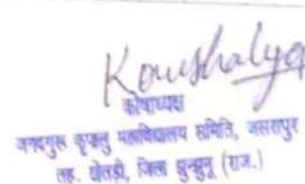 Koushalya
कोषाध्यक्ष
जगदगुरू कृपालु महाविद्यालय समिति, जसरापुर
तह. खेतड़ी, जिला झुन्झुनू (राज.)